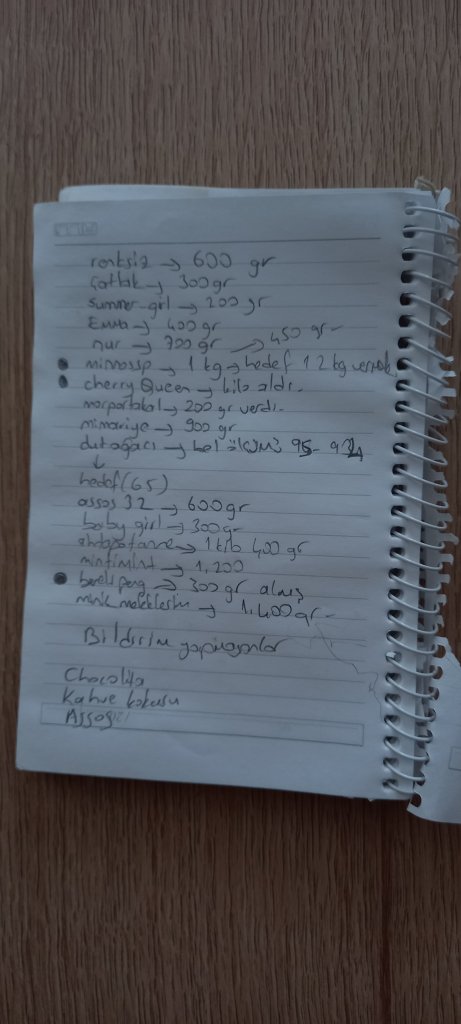 renksiz → 600 gr
Çatlak → 300 gr
summer-girl → 200 gr
Emma → 400 gr
nur → 700 gr → 450 gr
minnossp → 1 kg → hedef 12 kg vermek
cherry Queen → kilo aldı.
morportakal → 200 gr verdi.
mimariye → 900 gr
dutağacı → bel ölçüm 95-92
hedef (65)
assos 32 → 600 gr
baby girl → 300 gr
→ 1 kilo 400 gr
mintimint → 1,200
→ 300 gr almış
minik meleklerim → 1.400 gr
Bildirim yapmayanlar
Chocolita
Kahve kokusu
Assos